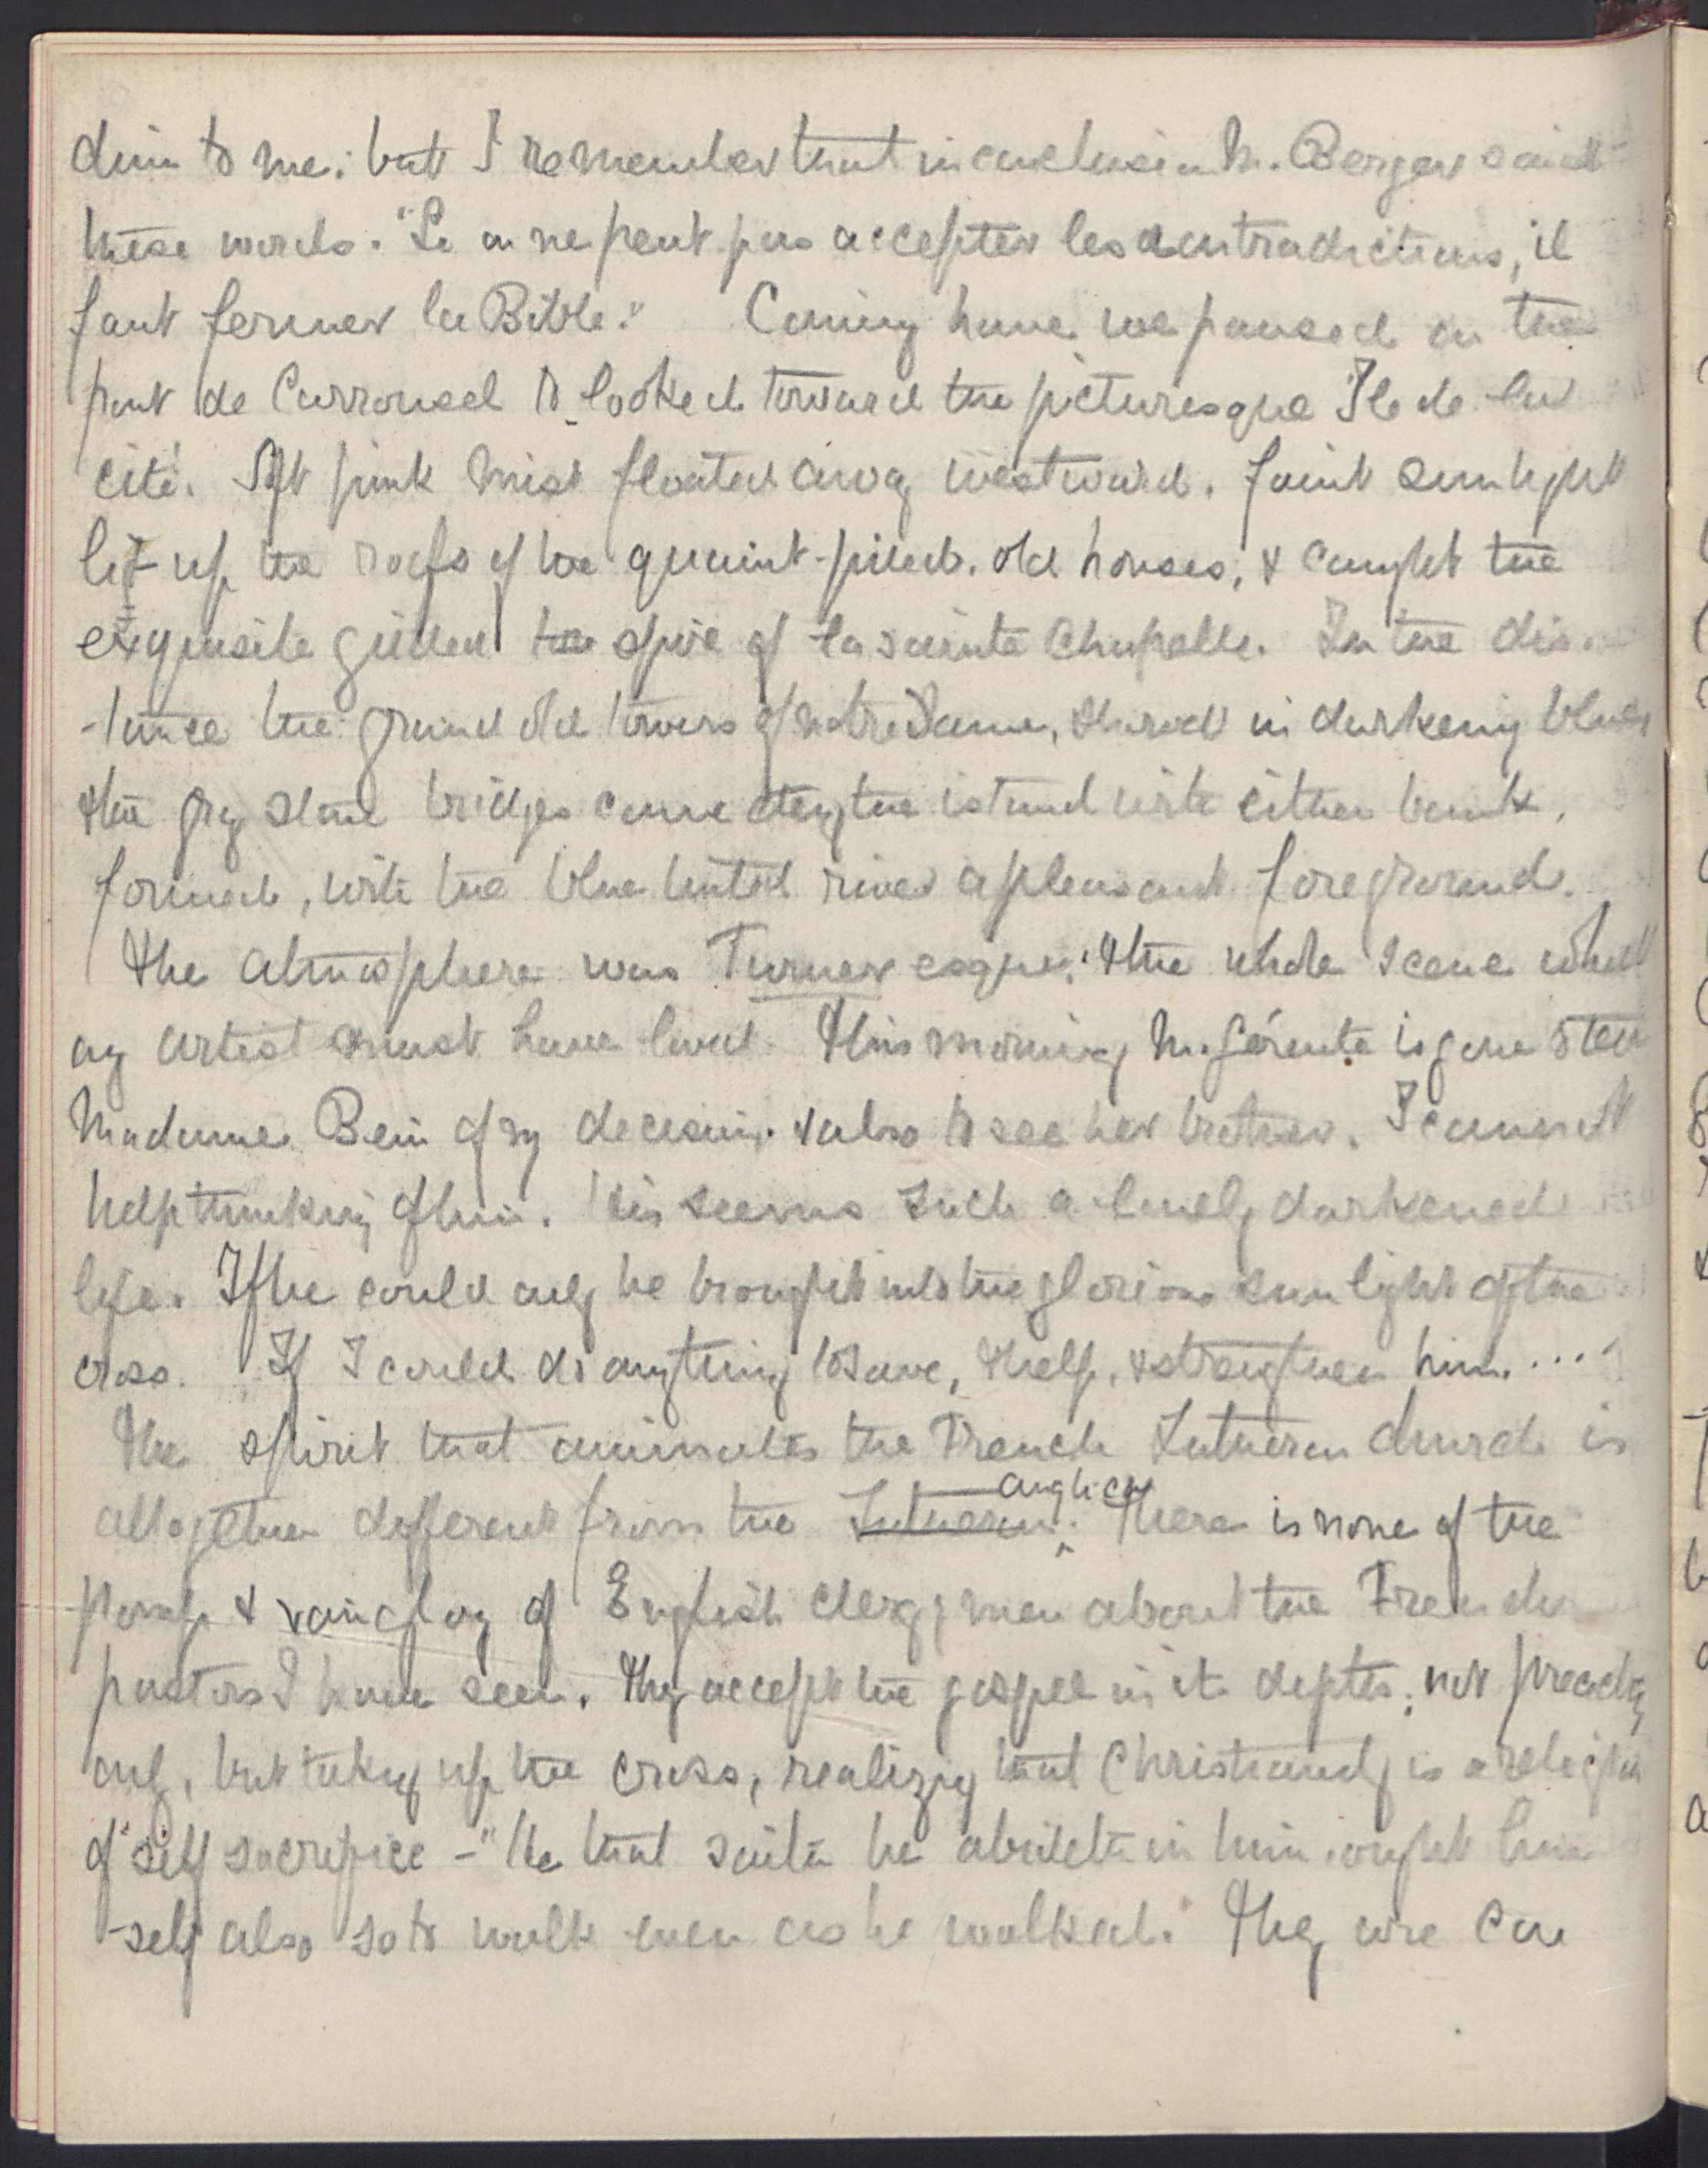 dim to me: but I remember that in conclusion M. Berger said
these words. "Si on ne peut pas accepter les contradictions, il
faut fermer la Bible." Coming home we paused on the
pont de Carrousel to looked toward the picturesque Ile de la
cité. Soft pink mist floated away westward. faint sunlight
lit up the roofs of the quaint-piled. old houses, & caught the
exquisite gilded spire of la sainte Chapelle. In the dis-
-tance the grand old towers of Notre Dame, stood in darkening blue,
the gray stone bridges connecting the island with either bank,
formed, with the blue tinted river a pleasant foreground.
The atmosphere was Turner esque: the whole scene what
any artist must have loved. This morning M. Gérente is gone to tell
Madame Bein of my decision. & also to see her brother. I cannot
help thinking of him. his seems such a lonely darkened
life. If he could only be brought into the glorious sun light of the
cross. If I could do anything to save, & help, & strengthen him....
The spirit that animates the French Lutheran church is
altogether different from the Lutheran. Anglican There is none of the
pomp & vainglory of English clergymen about the French
pastors I have seen. They accept the gospel in its depths; not preaching
only, but taking up the cross, realizing that Christianity is a religion
of self sacrifice - "He that saith he abideth in him ought him
-self also so to walk even as he walked." They are con